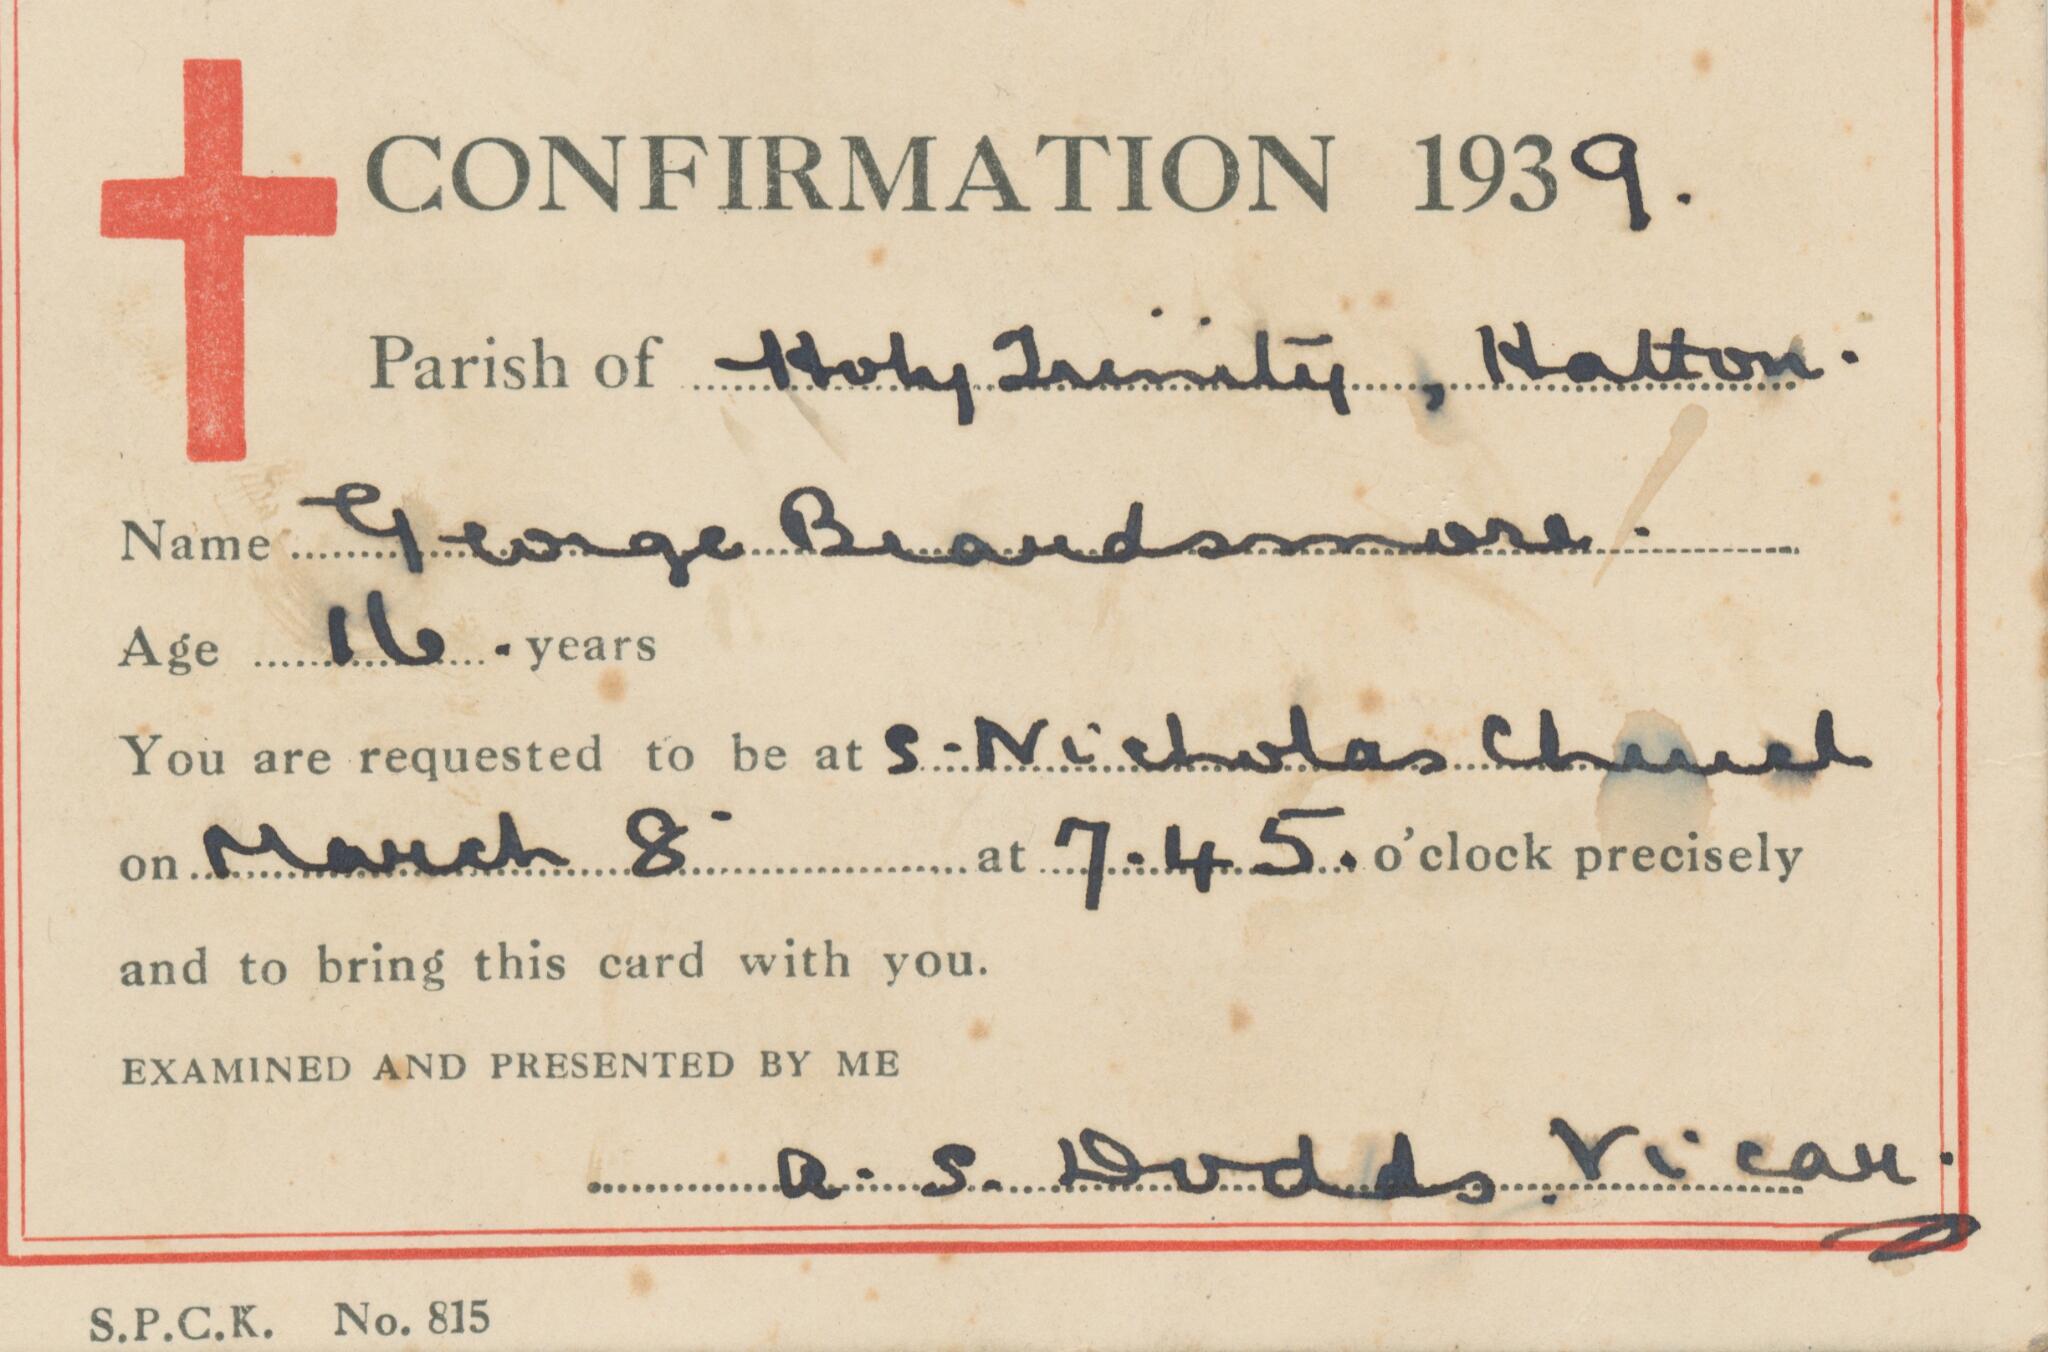 CONFIRMATION 1939.
Parish of Holy Trinity, Hatton.
Name George Beardsmore.
Age 16. years
You are requested to be at S. Nicholas Church
on March 8 at 7.45. o'clock precisely
and to bring this card with you.
EXAMINED AND PRESENTED BY ME
A. S. Dodds. Vicar.
S.P.C.K. No. 815